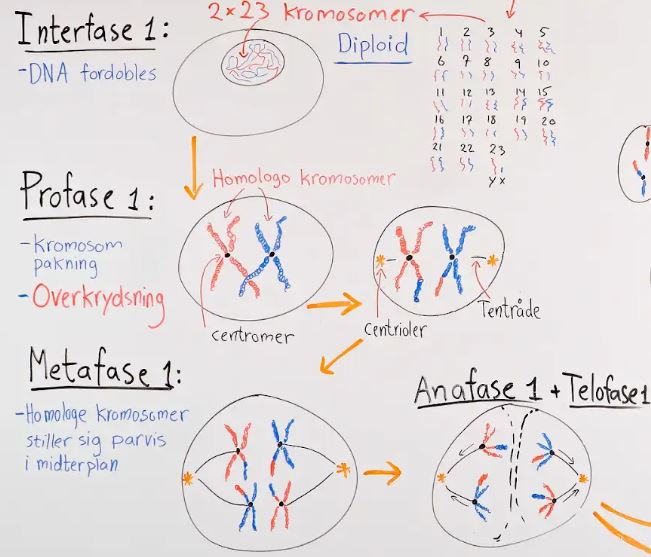 2×23 kromosomer
Interfase 1:
-DNA fordobles
Diploid
1 2 3 4 5
6 7 8 9 10
11 12 13 14 15
16 17 18 19 20
21 22 23
Y X
Profase 1:
-kromosom
pakning
-Overkrydsning
Homologo kromosomer
centromer
Centrioler
Tentråde
Metafase 1:
-Homologe kromosomer
stiller sig parvis
i midterplan
Anafase 1 + Telofase1